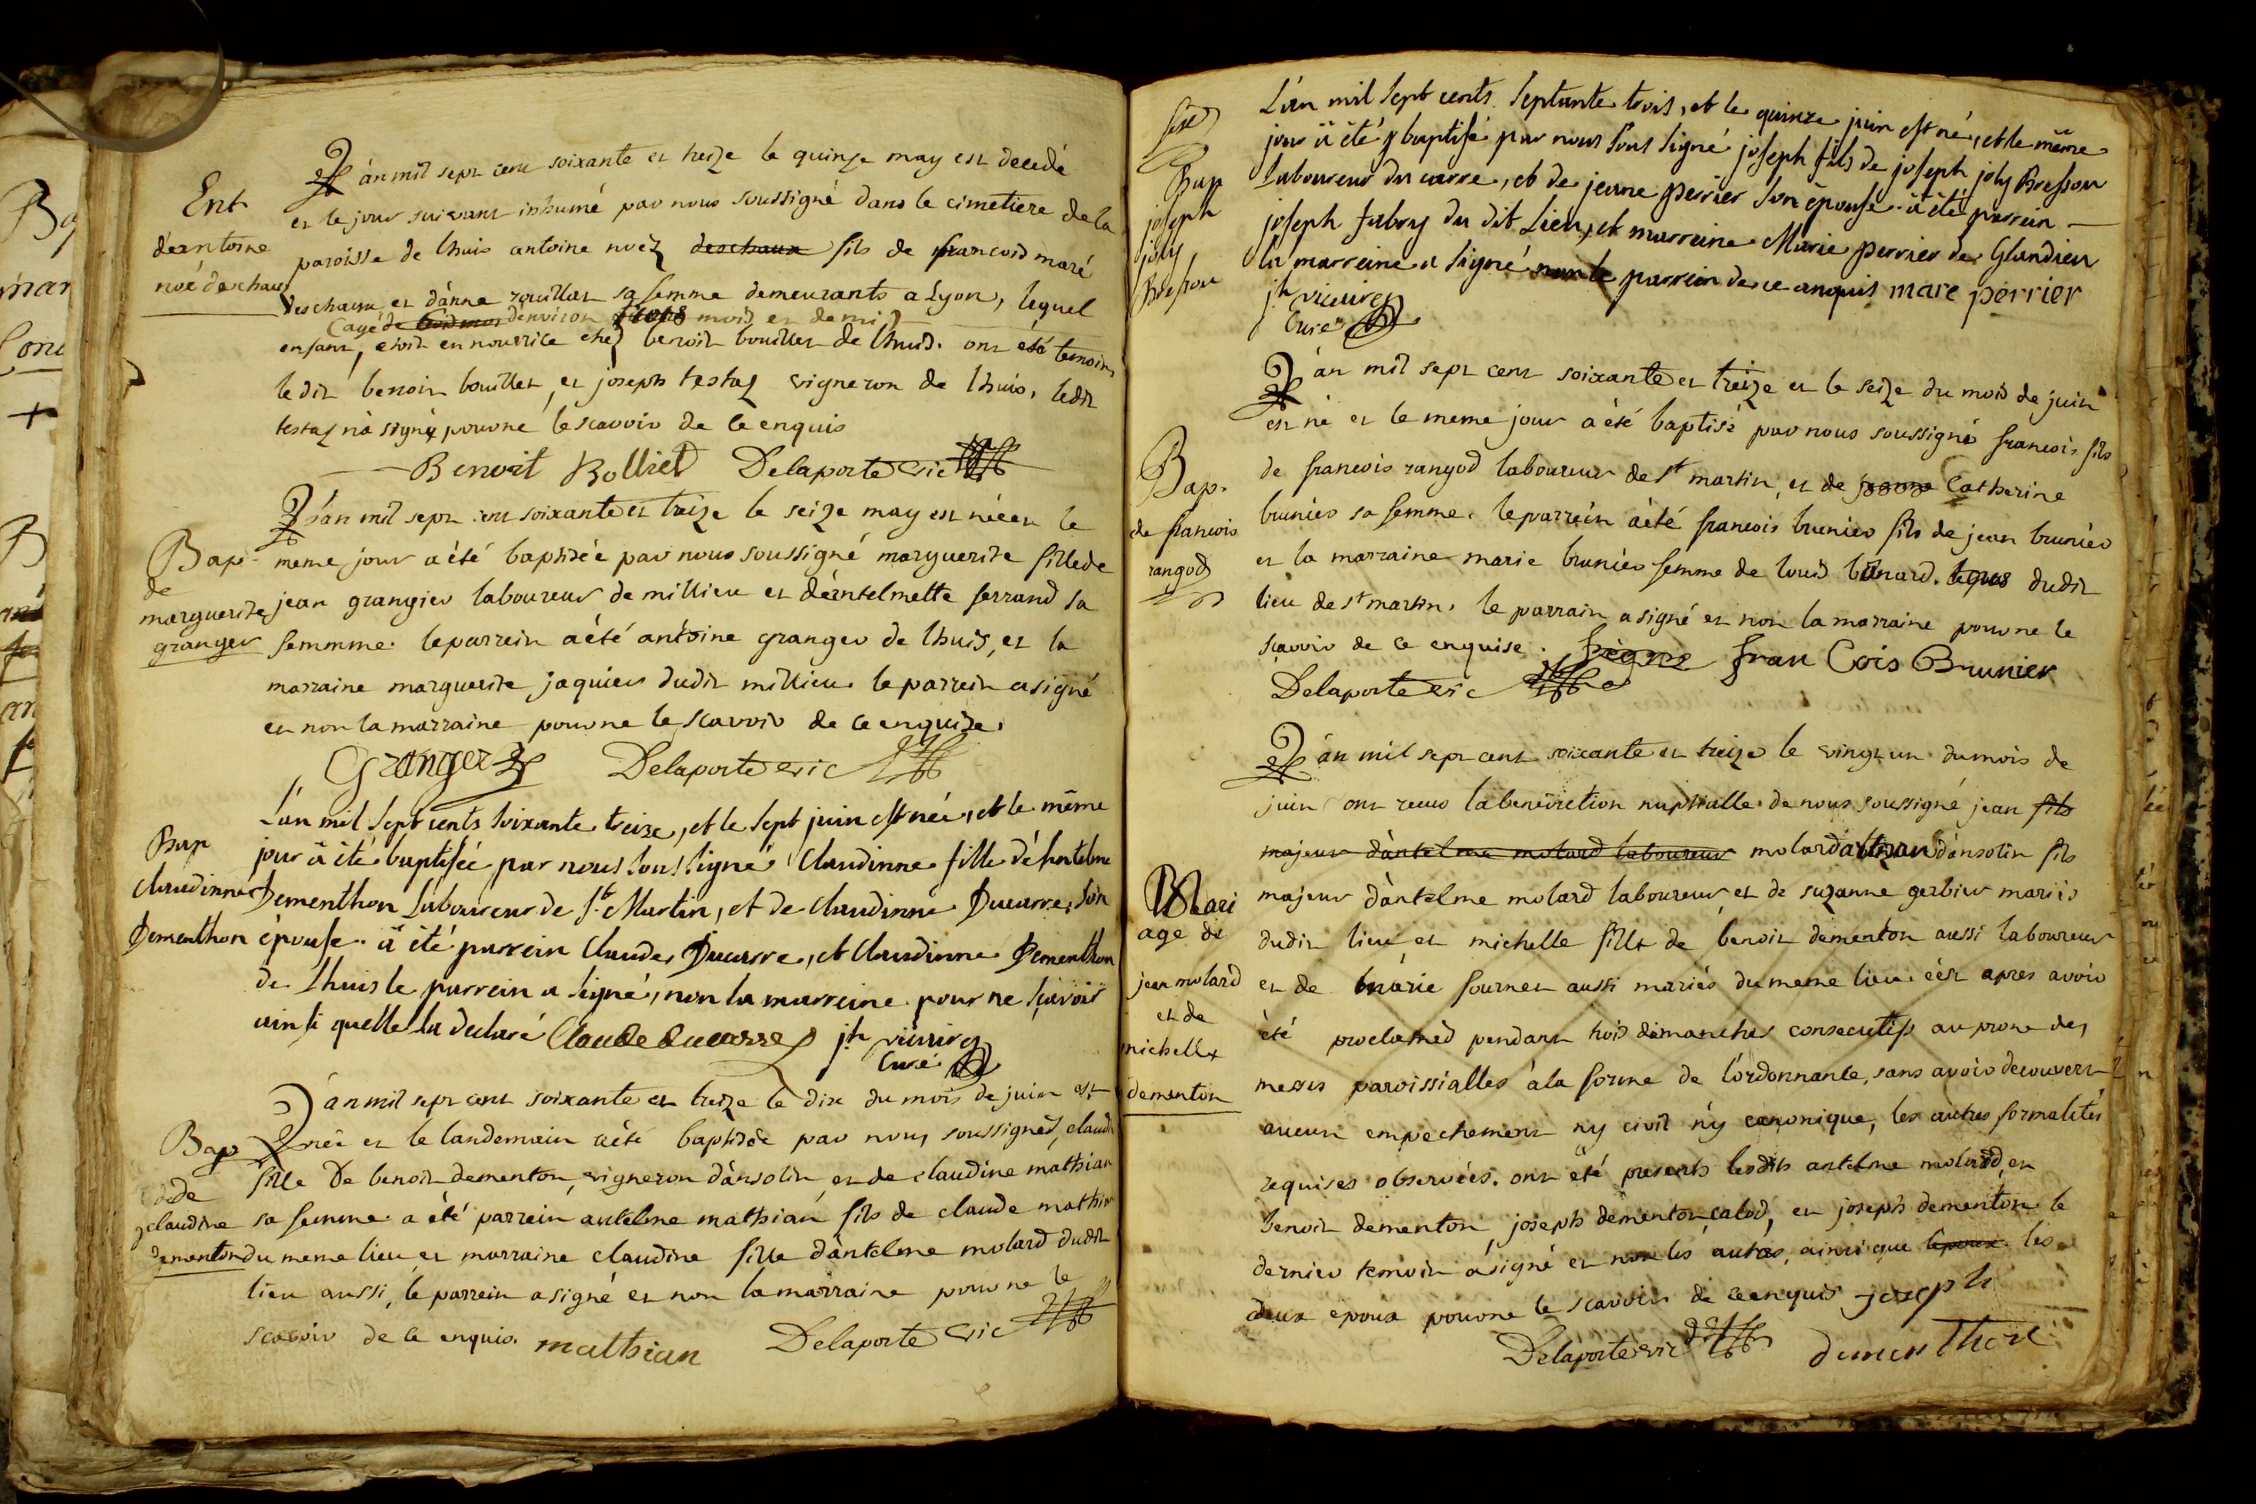 Ent
d'eantoine
noé deschaux
L'an mil sept cent soixante et treize le quinze may est decedé
et le jour suivant inhumé par nous soussigné dans le cimetiere de la
paroisse de lhuis antoine noéz deschaux fils de francois maré
deschaux et d'anne rouillet sa femme demeurants a Lyon, lequel
(agé de d'environ mois et demi)
enfant, etoit en nourrice chez benoit bouillet de lhuis. ont été temoins
le dit benoit bouillet, et joseph testaz vigneron de lhuis, ledit
testaz n'a signé pour ne le scavoir de ce enquis
Benoit Rolliet Delaporte vic
Bap.
de
marguerite
granger
L'an mil sept cent soixante et treize le seize may est née et le
meme jour a été baptisée par nous soussigné marguerite fille de
jean grangier laboureur de millieu et d'éantelmette ferrand sa
femmme. le parrein a été antoine granger de lhuis, et la
marraine marguerite jaquier dudit millieu le parrein a signé
et non la marraine pour ne le scavoir de ce enquize.
Granger Delaporte vic
Bap
Claudinne
Dementhon
L'an mil sept cents soixante treize, et le sept juin est née, et le même
jour à été baptisée par nous sous signé Claudinne fille d'éantelme
Dementhon Laboureur de St. Martin, et de Claudinne Ducarre, son
épouse. à été parrein Claude Ducarre, et Claudinne Dementhon
de Lhuis le parrein a signé, non la marreine pour ne sçavoir
ainsi quelle la declaré Claude ducarre jh vicaire
Curé
Bap
de
claudine
dementon
L'an mil sept cent soixante et treize le dix du mois de juin est
née et le landemain a été baptisée par nous soussignés, claudine
fille de benoit dementon, vigneron d'ansolin et de claudine mathian
sa femme. a été parrein antelme mathian fils de claude mathian
du meme lieu et marraine claudine fille d'antelme molard dudit
lieu aussi, le parrein a signé et non la marraine pour ne le
scavoir de ce enquis. mathian Delaporte vic
Bap
joseph
joly
Bresson
L'an mil sept cents septante trois, et le quinze juin est né, et le même
jour à été baptisé par nous sous signé joseph fils de joseph joly Bresson
Laboureur du carre, et de jeane perrier son épouse. à été parrein
joseph fabry du dit Lieu, et marreine Marie perrier de Glandieu
la marreine a signé non le parrein de ce anquis mare perrier
jh vicaire
Curé
Bap.
de francois
rangod
L'an mil sept cent soixante et treize et le seize du mois de juin
est né et le meme jour a été baptisé par nous soussigné francois fils
de francois rangod laboureur de st martin, et de Catherine
brunier sa femme. le parrein a été francois brunier fils de jean brunier
et la marraine marie brunier femme de louis bonard. dudit
lieu de st martin. le parrain a signé et non la marraine pour ne le
scavoir de ce enquise. fran Cois Brunier
Delaporte vic
Mari
age de
jean molard
et de
michelle
dementon
L'an mil sept cent soixante et treize le vingt un du mois de
juin ont recus la benediction nuptialle de nous soussigné jean fils
majeur d'antelme molard laboureur molard d'ansolin fils
majeur d'antelme molard laboureur et de suzanne gerbier mariés
dudit lieu et michelle fille de benoit dementon aussi laboureur
et de marie fournet aussi mariés du meme lieu. c'est apres avoir
été proclamés pendant trois dimanches consecutifs au prone des
messes paroissialles a la forme de l'ordonnance, sans avoir decouvert
aucun empechement ny civil n'y canonique, les autres formalités
requises observées. ont été presents lesdits antelme molard, et
benoit dementon, joseph dementon calod, et joseph dementon le
dernier temoin a signé et non les autres, ainsi que les
deux epoux pour ne le scavoir de ce enquis joseph
Delaporte vic dementhon